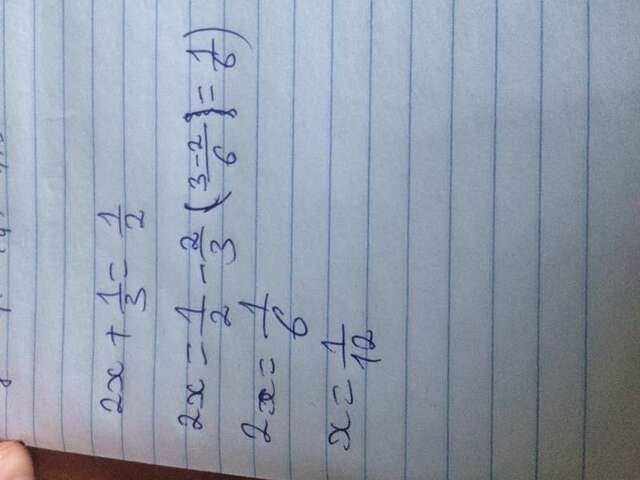 2x + 1/3 = 1/2
2x = 1/2 - 2/3 (3-2/6 = 1/6)
2x = 1/6
x = 1/12